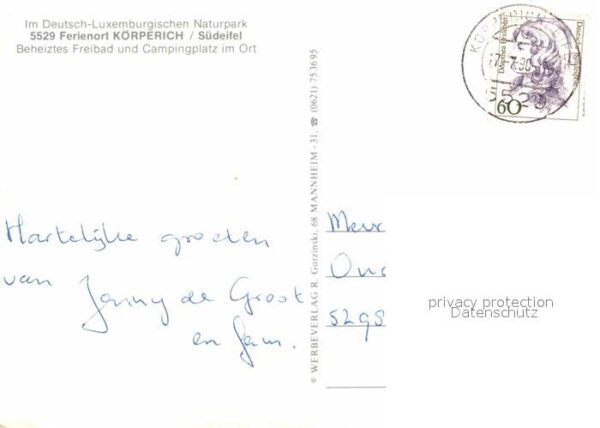 Im Deutsch-Luxemburgischen Naturpark
5529 Ferienort KÖRPERICH / Südeifel
Beheiztes Freibad und Campingplatz im Ort
60
Hartelijke groeten
van Jenny de Groot
en fam.
© WERBEVERLAG R. Gorzinski, 68 MANNHEIM - 31, ☎ (0621) 75 36 95
5298
privacy protection
Datenschutz